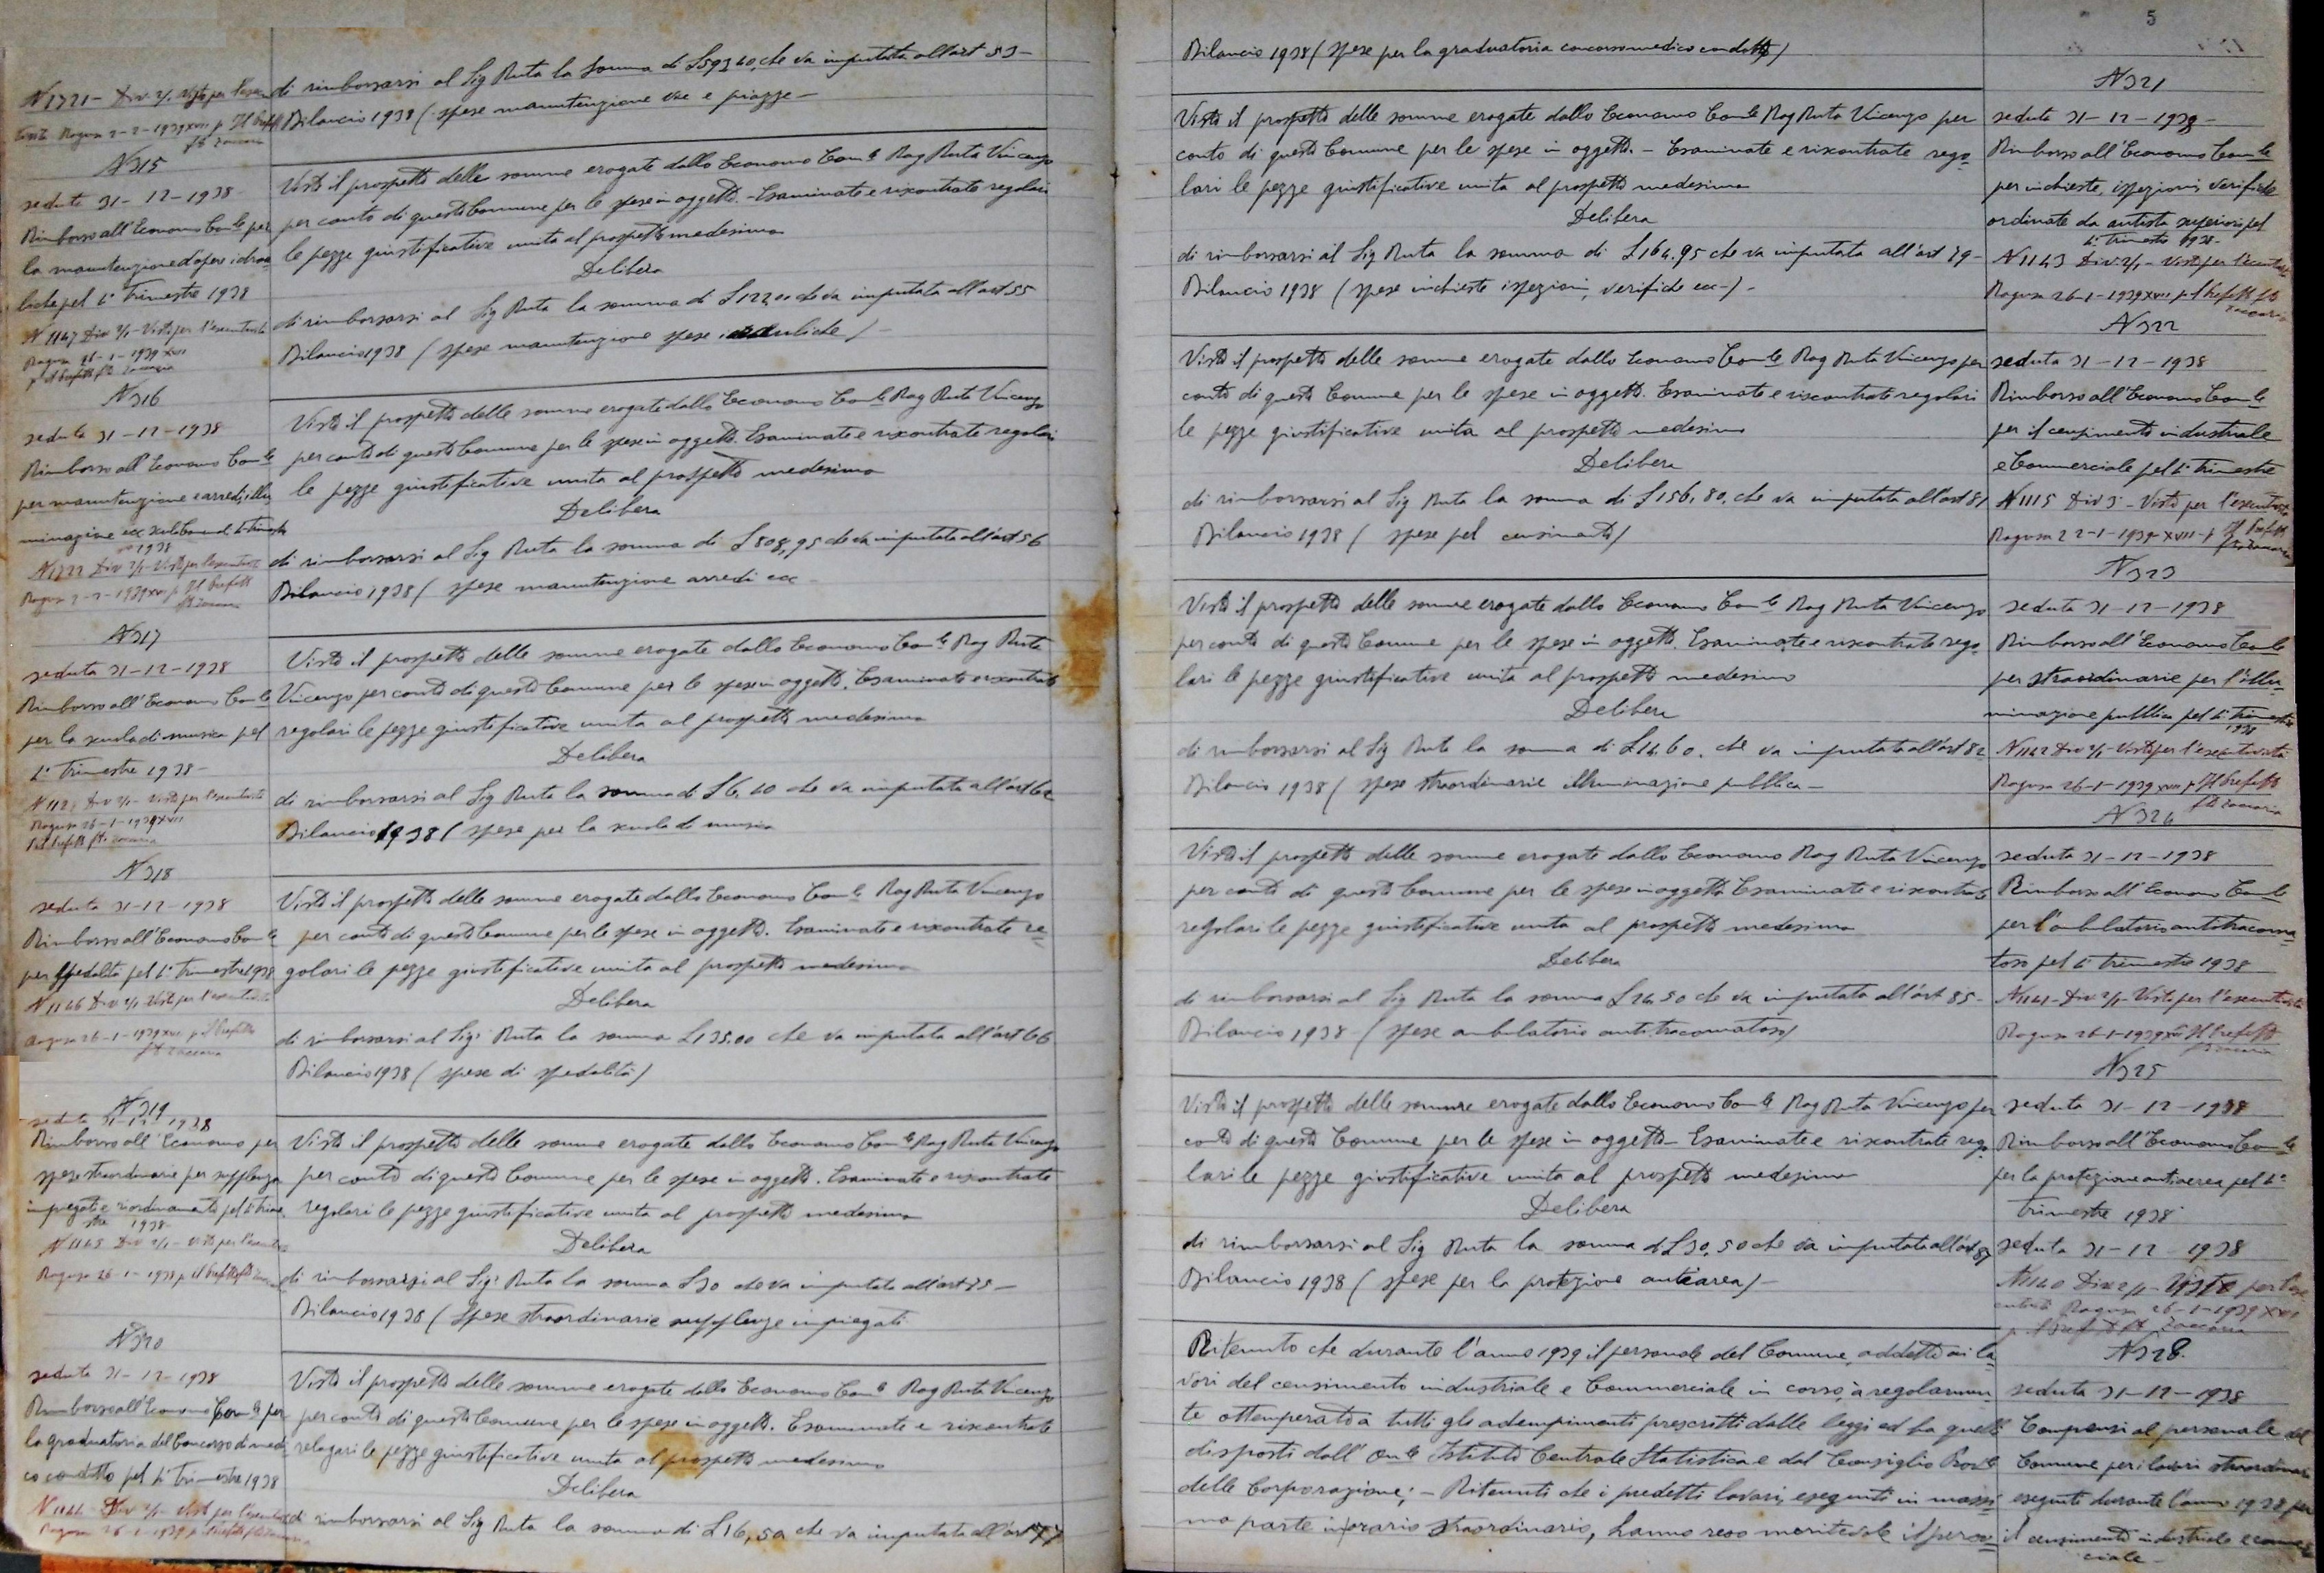 N 1721 - Div 2/1 Visto per l'esecu
di rimborsarsi al Sig Ruta la somma di L 593,40, che va imputata all'art 53 -
Bilancio 1938 ( spese manutenzione vie e piazze -
Ragusa 2-2-1939 XVII p Il Prefetto
N 315
seduta 31-12-1938
Rimborso all'Economo Com.le per
la manutenzione d'opere idrau
liche pel 4° Trimestre 1938
N 1147 Div 2/1 - Visto per l'esecutività
Ragusa 26-1-1939 XVII
p Il Prefetto fto Zaccaria
Visto il prospetto delle somme erogate dallo Economo Com.le Rag Ruta Vincenzo
per conto di questo Comune per le spese in oggetto. - Esaminate e riscontrate regolari
le pezze giustificative unita al prospetto medesimo
Delibera
di rimborsarsi al Sig Ruta la somma di L 122,00 che va imputata all'art 55
Bilancio 1938 ( spese manutenzione spese idrauliche ) -
N 316
seduta 31-12-1938
Rimborso all'Economo Com.le
per manutenzione e arredi, illu
minazione ecc
1938
N 1722 Div 2/1 - Visto per l'esecutività
Ragusa 2-2-1939 XVII p Il Prefetto
fto Zaccaria
Visto il prospetto delle somme erogate dallo Economo Com.le Rag Ruta Vincenzo
per conto di questo Comune per le spese in oggetto. Esaminate e riscontrate regolari
le pezze giustificative unita al prospetto medesimo
Delibera
di rimborsarsi al Sig Ruta la somma di L 808,95 che va imputata all'art 56
Bilancio 1938 ( spese manutenzione arredi ecc -
N 317
seduta 31-12-1938
Rimborso all'Economo Com.le
per la scuola di musica pel
4° Trimestre 1938 -
Div 2/1 - Visto per l'esecutività
Ragusa 26-1-1939 XVII
p Il Prefetto fto Zaccaria
Visto il prospetto delle somme erogate dallo Economo Com.le Rag Ruta
Vincenzo per conto di questo Comune per le spese in oggetto. Esaminate e riscontrate
regolari le pezze giustificative unita al prospetto medesimo
Delibera
di rimborsarsi al Sig Ruta la somma di L 6,40 che va imputata all'art 62
Bilancio 1938 ( spese per la scuola di musica
N 318
seduta 31-12-1938
Rimborso all'Economo Com.le
per spedalità pel 4° Trimestre 1938
N 1146 Div 2/1 Visto per l'esecutività
Ragusa 26-1-1939 XVII p Il Prefetto
fto Zaccaria
Visto il prospetto delle somme erogate dallo Economo Com.le Rag Ruta Vincenzo
per conto di questo Comune per le spese in oggetto. Esaminate e riscontrate re=
golari le pezze giustificative unita al prospetto medesimo
Delibera
di rimborsarsi al Sig. Ruta la somma L 135,00 che va imputata all'art 66
Bilancio 1938 ( spese di spedalità )
N 319
seduta 31-12-1938
Rimborso all'Economo per
spese straordinarie per supplenza
impiegati e riordinamento pel 4° trime
stre 1938
N 1145 Div 2/1 - Visto per l'esecutiv
Ragusa 26-1-1939 p Il Prefetto fto Zaccaria
Visto il prospetto delle somme erogate dallo Economo Com.le Rag Ruta Vincenzo
per conto di questo Comune per le spese in oggetto. Esaminate e riscontrate
regolari le pezze giustificative unita al prospetto medesimo
Delibera
di rimborsarsi al Sig. Ruta la somma L 30 che va imputata all'art 75 -
Bilancio 1938 ( Spese straordinarie supplenze impiegati
N 320
seduta 31-12-1938
Rimborso all'Economo Com.le per
la graduatoria del Concorso di medi
co condotto pel 4° Trimestre 1938
N 1144 - Div 2/1 - Visto per l'esecutività
Ragusa 26-1-1939 p Il Prefetto fto Zaccaria
Visto il prospetto delle somme erogate dallo Economo Com.le Rag Ruta Vincenzo
per conto di questo Comune per le spese in oggetto. Esaminate e riscontrate
relogari le pezze giustificative unita al prospetto medesimo
Delibera
di rimborsarsi al Sig Ruta la somma di L 16,50 che va imputata all'art 77
5
Bilancio 1938 ( spese per la graduatoria concorso medico condotto )
N 321
seduta 31-12-1938 -
Rimborso all'Economo Com.le
per inchieste, ispezioni, verifiche
ordinate da autorità superiori pel
4° trimestre 1938 -
N 1143 Div. 2/1 - Visto per l'esecutività
Ragusa 26-1-1939 XVII p Il Prefetto fto
Zaccaria
Visto il prospetto delle somme erogate dallo Economo Com.le Rag Ruta Vincenzo per
conto di questo Comune per le spese in oggetto. - Esaminate e riscontrate rego=
lari le pezze giustificative unita al prospetto medesimo
Delibera
di rimborsarsi al Sig Ruta la somma di L 164.95 che va imputata all'art 79 -
Bilancio 1938 ( spese inchieste ispezioni, verifiche ecc - ) -
N 322
seduta 31-12-1938
Rimborso all'Economo Com.le
per il censimento industriale
e Commerciale pel 4° Trimestre
N 1115 Div 3° - Visto per l'esecutività
Ragusa 22-1-1939 XVII - p Il Prefetto
fto Zaccaria
Visto il prospetto delle somme erogate dallo Economo Com.le Rag Ruta Vincenzo per
conto di questo Comune per le spese in oggetto. Esaminate e riscontrate regolari
le pezze giustificative unita al prospetto medesimo
Delibera
di rimborsarsi al Sig Ruta la somma di L 156,80, che va imputata all'art 81
Bilancio 1938 ( spese pel censimento )
N 323
seduta 31-12-1938
Rimborso all'Economo Com.le
per straordinarie per l'illu=
minazione pubblica pel 4° trimestre
1938
N 1142 Div 2/1 - Visto per l'esecutività
Ragusa 26-1-1939 XVII p Il Prefetto
fto Zaccaria
Visto il prospetto delle somme erogate dallo Economo Com.le Rag Ruta Vincenzo
per conto di questo Comune per le spese in oggetto. Esaminate e riscontrate rego=
lari le pezze giustificative unita al prospetto medesimo
Delibera
di rimborsarsi al Sig Ruta la somma di L 14,60, che va imputata all'art 82
Bilancio 1938 ( spese straordinarie illuminazione pubblica -
N 324
seduta 31-12-1938
Rimborso all'Economo Com.le
per l'ambulatorio antitracoma=
toso pel 4° trimestre 1938
N 1141 - Div 2/1 - Visto per l'esecutività
Ragusa 26-1-1939 XVII Il Prefetto
fto Zaccaria
Visto il prospetto delle somme erogate dallo Economo Rag Ruta Vincenzo
per conto di questo Comune per le spese in oggetto Esaminate e riscontrate
regolari le pezze giustificative unita al prospetto medesimo
Delibera
di rimborsarsi al Sig Ruta la somma L 24,50 che va imputata all'art 85 -
Bilancio 1938 - ( spese ambulatorio antitracomatoso )
N 325
seduta 31-12-1938
Rimborso all'Economo Com.le
per la protezione antiaerea pel 4°
Trimestre 1938
seduta 31-12-1938
N 1140 Div 2/1 - Visto per l'ese
cutività Ragusa 26-1-1939 XVII
p Il Prefetto fto Zaccaria
Visto il prospetto delle somme erogate dallo Economo Com.le Rag Ruta Vincenzo per
conto di questo Comune per le spese in oggetto - Esaminate e riscontrate rego
lari le pezze giustificative unita al prospetto medesimo
Delibera
di rimborsarsi al Sig Ruta la somma di L 30,50 che va imputata all'art 87
Bilancio 1938 ( spese per la protezione antiarea ) -
N 328.
seduta 31-12-1938
Compensi al personale del
Comune per i lavori straordinari
eseguiti durante l'anno 1938 per
il censimento industriale e commer
ciale -
Ritenuto che durante l'anno 1939 il personale del Comune, addetto ai la=
vori del censimento industriale e Commerciale in corso, à regolarmen=
te ottemperato a tutti gli adempimenti prescritti dalle leggi ed ha quelli
disposti dall' On.le Istituto Centrale Statistica e dal Consiglio Prov.le
delle Corporazione; - Ritenuti che i predetti lavori, eseguiti in massi
ma parte in orario straordinario, hanno reso meritevole il perso=